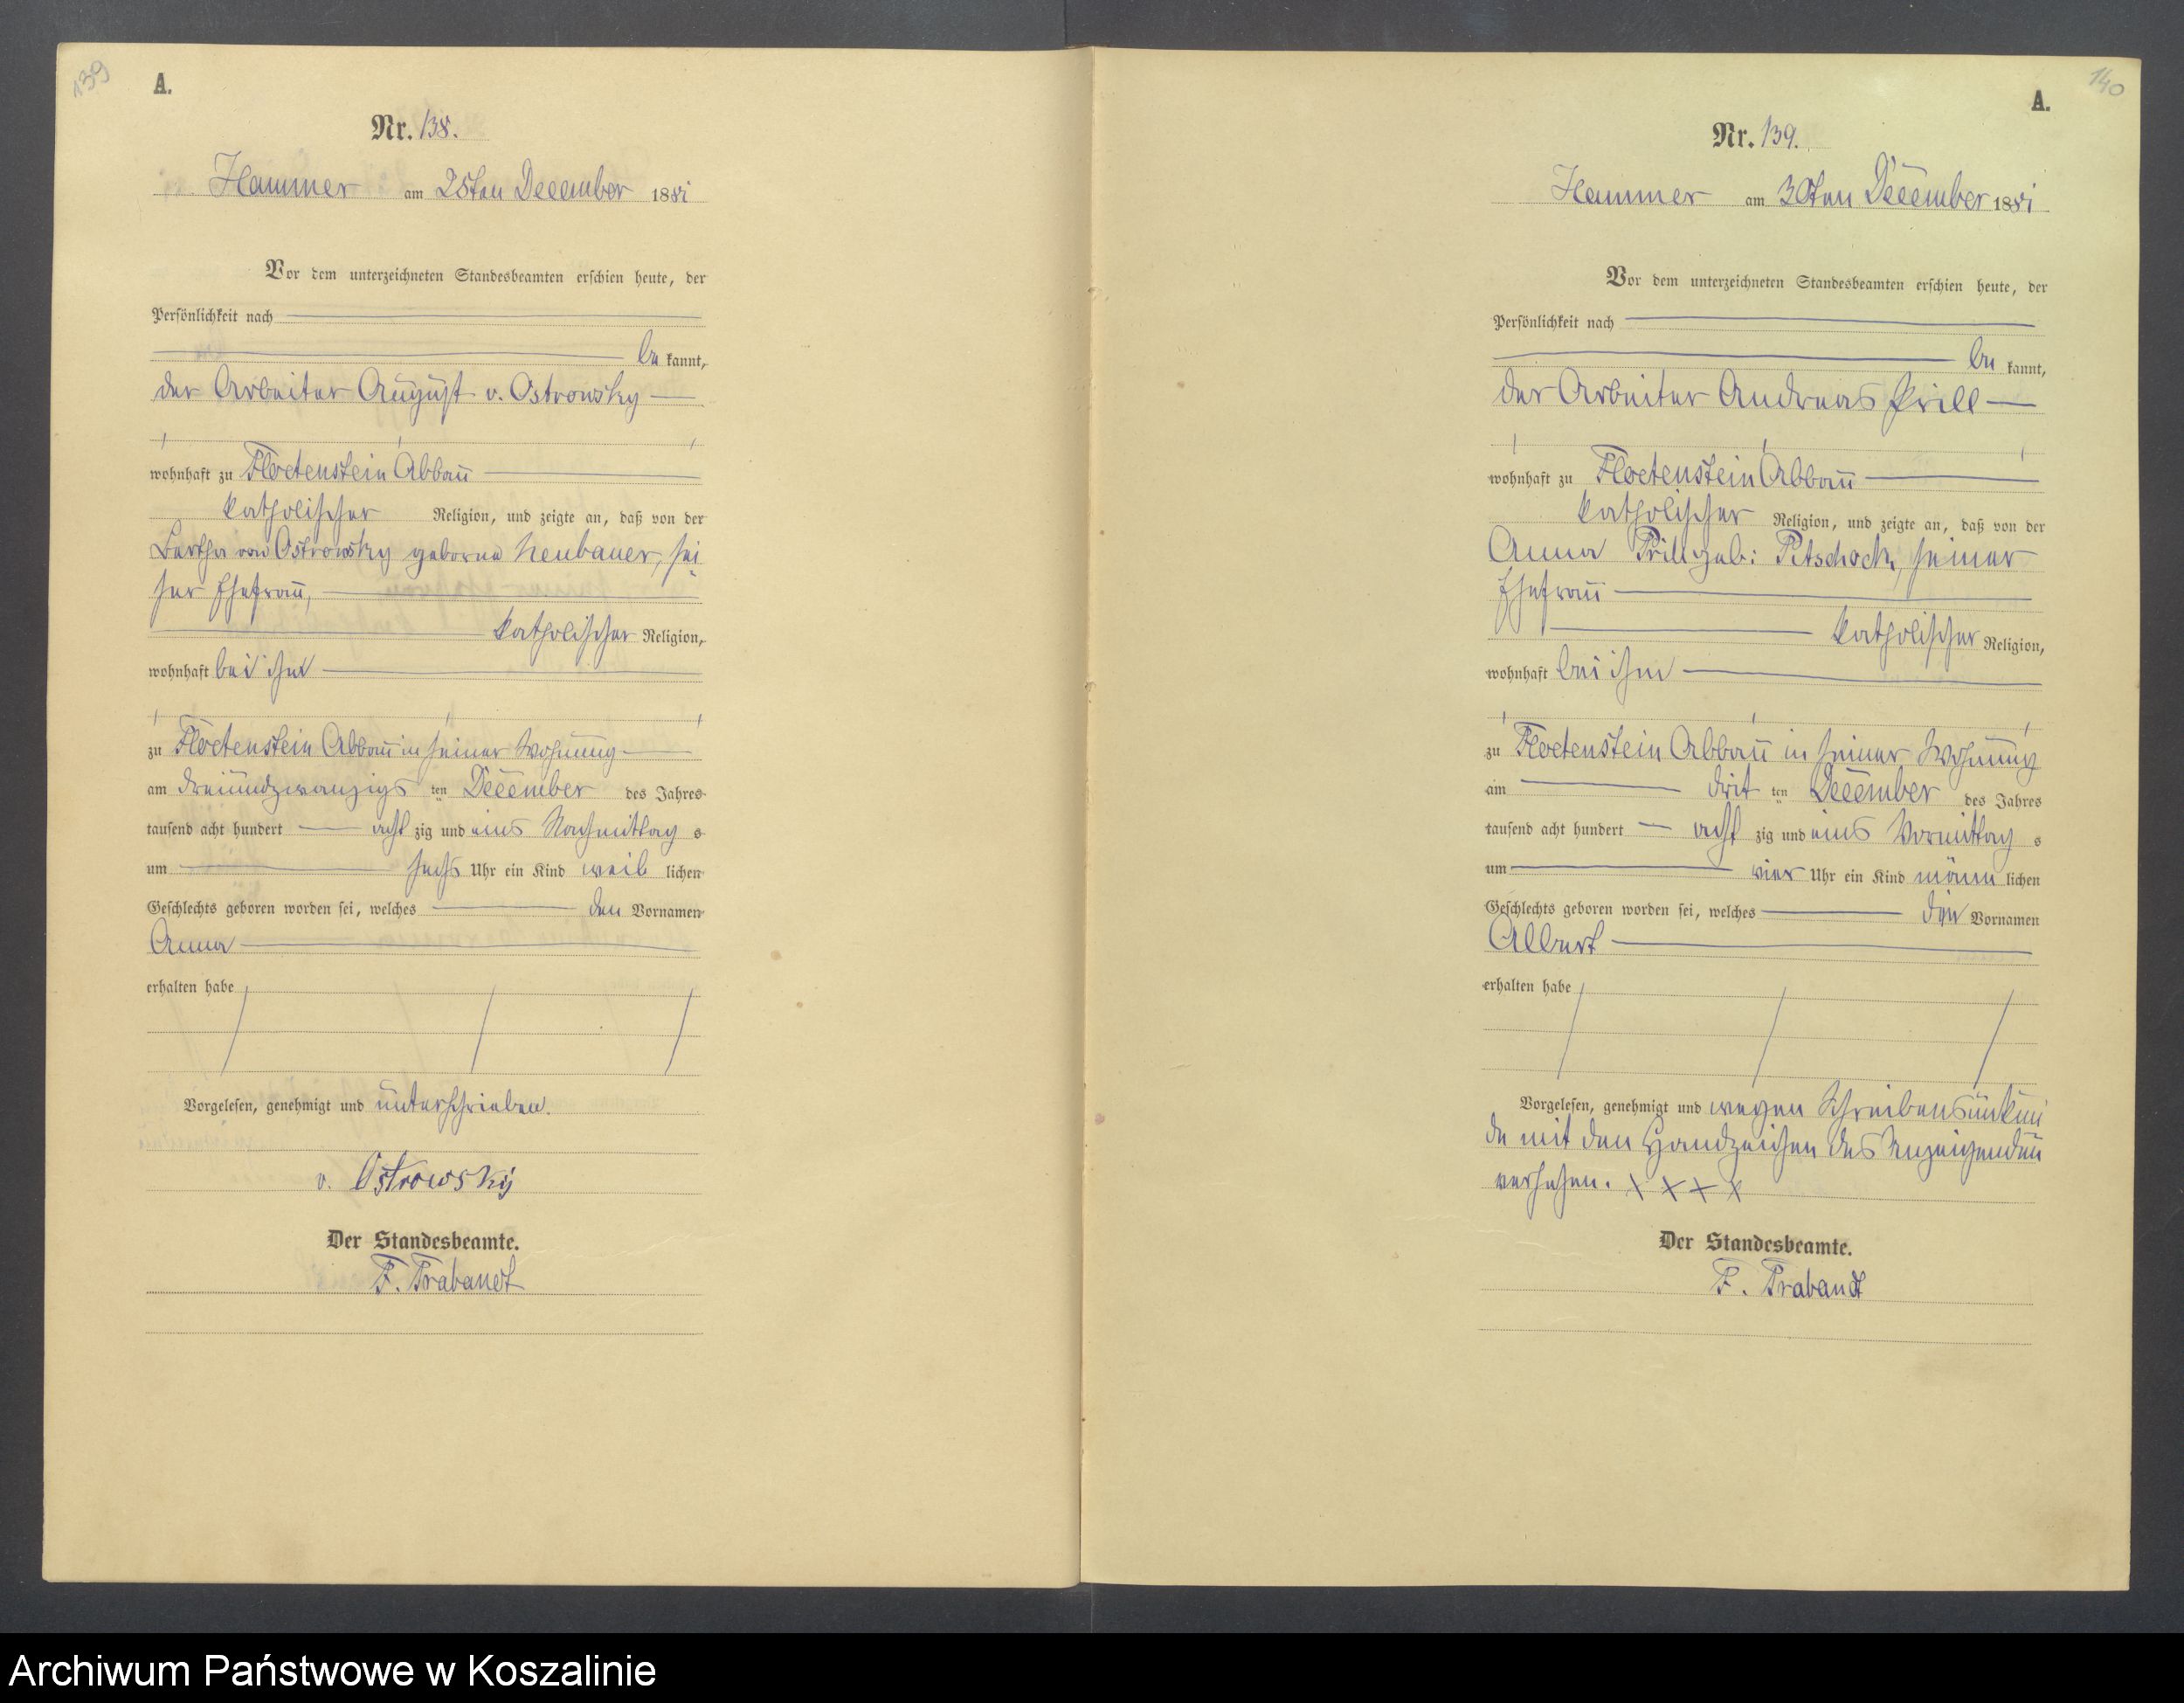 139
A.
Nr. 138.
Hammer am 28ten December 1881
Vor dem unterzeichneten Standesbeamten erschien heute, der
Persönlichkeit nach
be kannt,
der Arbeiter August v. Ostrowsky
wohnhaft zu Floetenstein Abbau
katholischer Religion, und zeigte an, daß von der
Bertha von Ostrowsky geborne Neubauer, sei
ner Ehefrau,
katholischer Religion,
wohnhaft bei ihm
zu Floetenstein Abbau in seiner Wohnung
am dreiundzwanzigs ten December des Jahres
tausend acht hundert acht zig und eins Nachmittag s
um sechs Uhr ein Kind weib lichen
Geschlechts geboren worden sei, welches den Vornamen
Anna
erhalten habe
Vorgelesen, genehmigt und unterschrieben.
v. Ostrowskij
Der Standesbeamte.
F. Trabandt
140
A.
Nr. 139.
Hammer am 30ten December 1881
Vor dem unterzeichneten Standesbeamten erschien heute, der
Persönlichkeit nach
be kannt,
der Arbeiter Andreas Prill
wohnhaft zu Floetenstein Abbau
katholischer Religion, und zeigte an, daß von der
Anna Prill geb: seiner
Ehefrau
katholischer Religion,
wohnhaft bei ihm
zu Floetenstein Abbau in seiner Wohnung
am drit ten December des Jahres
tausend acht hundert acht zig und eins Vormittag s
um vier Uhr ein Kind männ lichen
Geschlechts geboren worden sei, welches den Vornamen
Albert
erhalten habe
Vorgelesen, genehmigt und wegen Schreibensunkun
de mit den Handzeichen des Anzeigenden
versehen. x x x x
Der Standesbeamte.
F. Trabandt
Archiwum Państwowe w Koszalinie